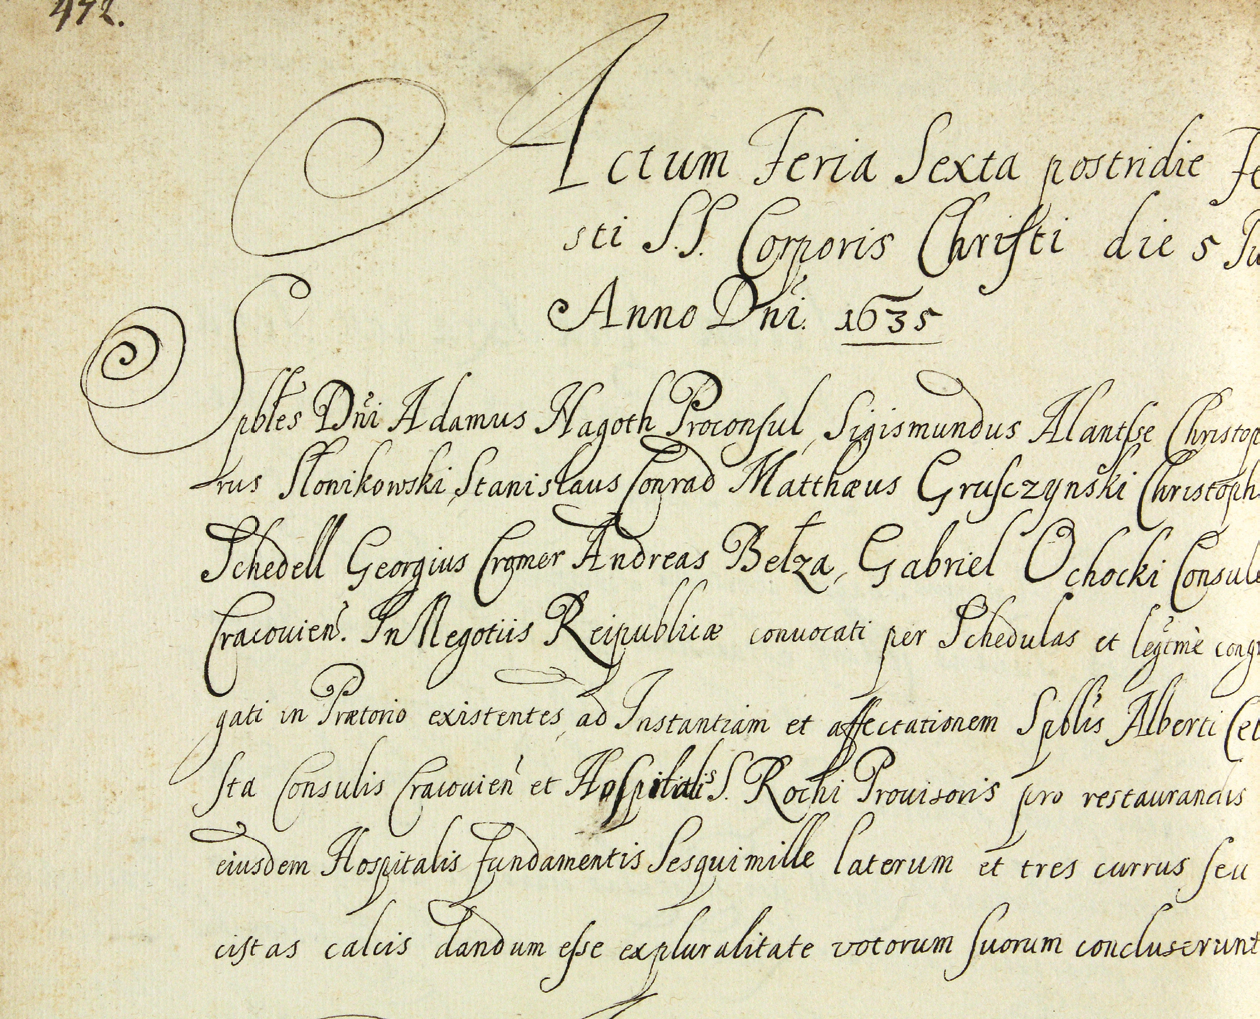 472.
Actum Feria Sexta postridie Fe
sti S.S. Corporis Christi die 5 Iu
Anno Dni. 1635
Spbles Dni Adamus Nagoth Proconsul, Sigismundus Alantsse Christop
rus Słonikowski, Stanislaus Conrad Matthæus Grusczynski Christoph
Schedell Georgius Cromer Andreas Bełza, Gabriel Ochocki Consule
Cracovien. In Negotiis Reipublicæ convocati per Schedulas et legtme congr
gati in Prætorio existentes, ad Instantiam et affectationem Spblis Alberti Cel
sta Consulis Cracovien et Hospitalis S. Rochi Provisoris pro restaurandis
eiusdem Hospitalis fundamentis Sesquimille laterum et tres currus seu
cistas calcis dandum esse expluralitate votorum suorum concluserunt